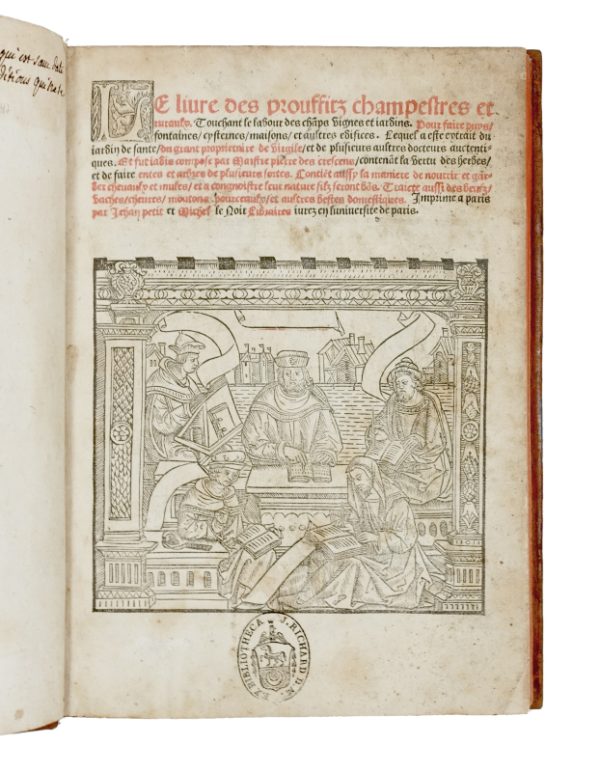 qui est sans date
LE liure des prouffitz champestres et
ruraulx. Touchant le labour des chãps vignes et iardins. Pour faire puys/
fontaines/cysternes/maisons/et aultres edifices. Lequel a este extrait du
iardin de sante/du grant proprietaire de virgile/et de plusieurs aultres docteurs auctenti-
ques. Et fut iadis compose par Maistre pierre des crescens/contenãt la vertu des herbes/
et de faire entes et arbres de plusieurs sortes. Contiẽt aussy la maniere de nourrir et gar-
der cheuaulx et mules/et a congnoistre leur nature silz seront bõs. Traicte aussi des beufz/
vaches/cheures/moutons/pourceaulx/et aultres bestes domestiques. Imprime a paris
par Jehan petit et Michel le Noir Libraires iurez en luniuersite de paris.
BIBLIOTHECA J. RICHARD D. M.